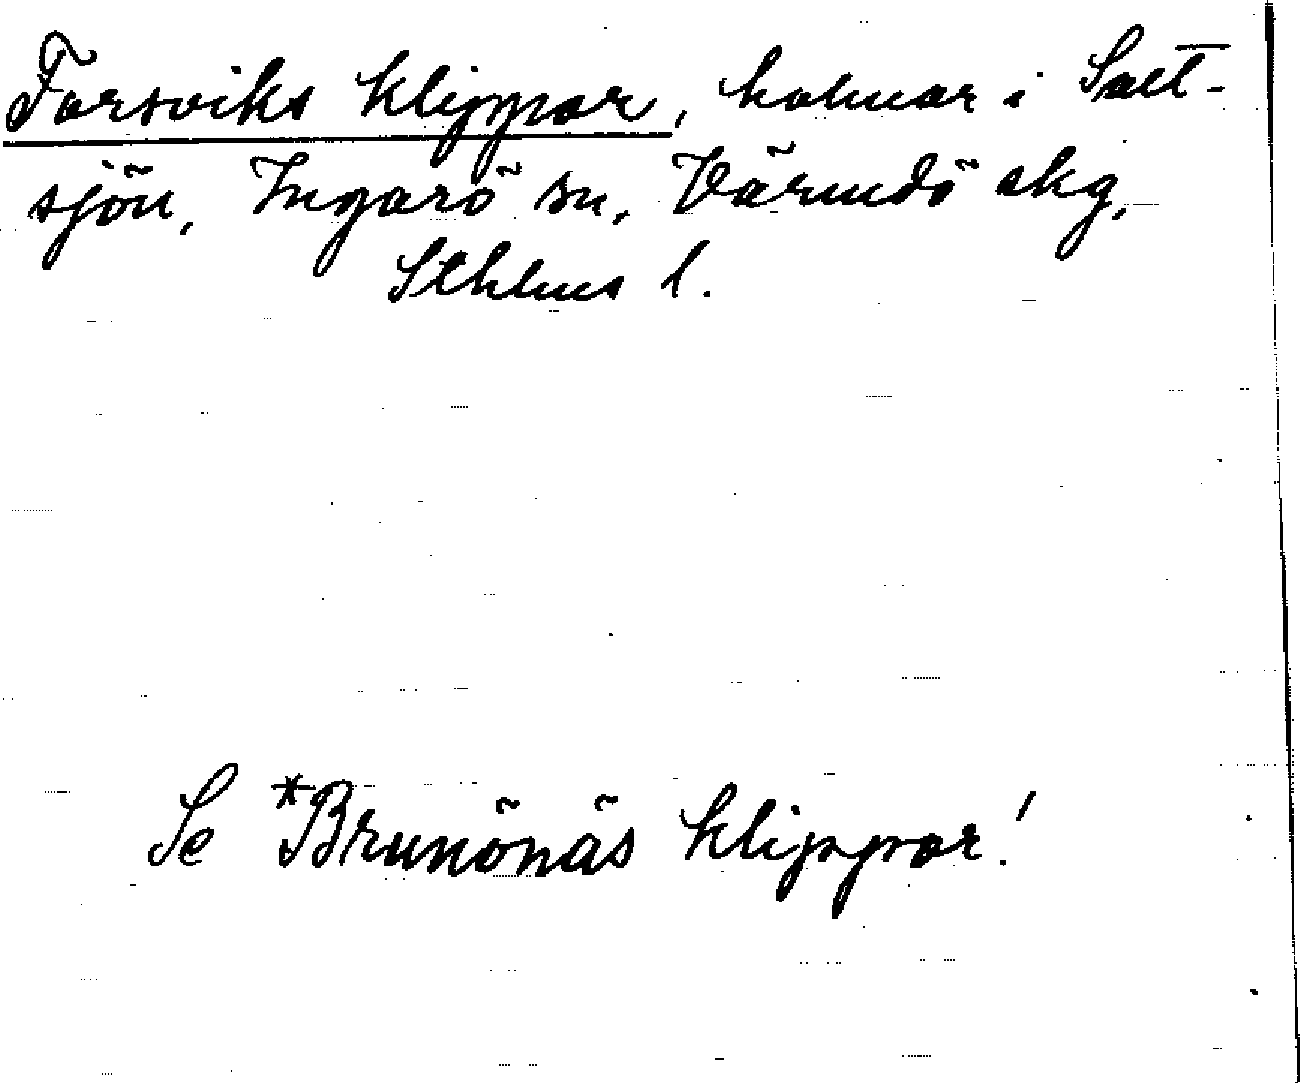 Forsviks klippor, holmar i Salt-
sjön, Ingarö sn, Värmdö skg,
Sthlms l.
Se *Brunönäs klippor!